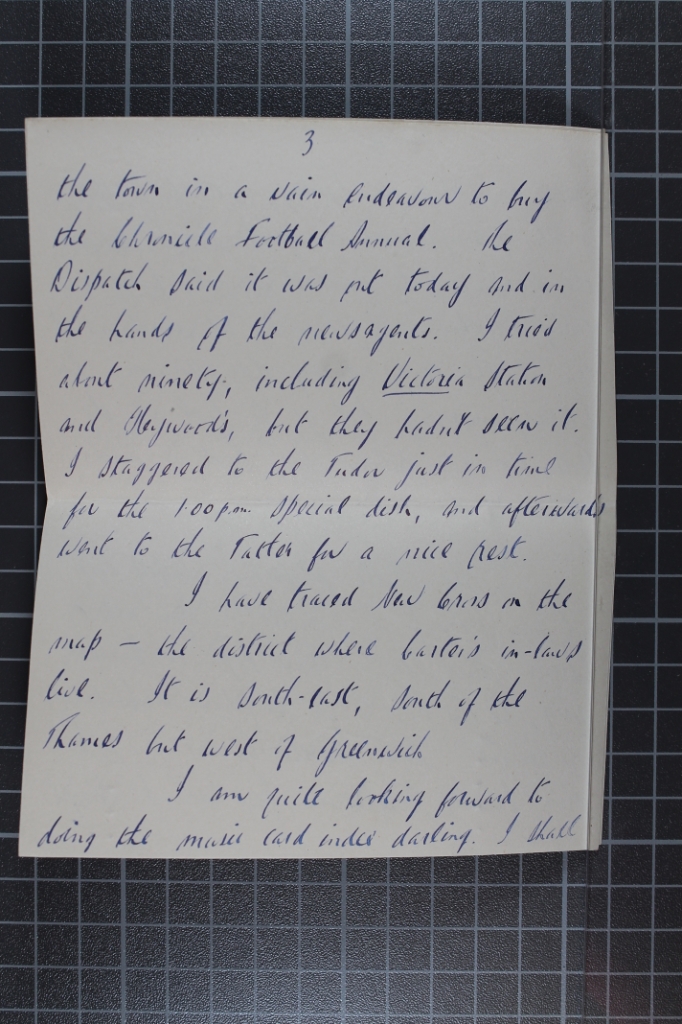 3
the town in a vain endeavour to buy
the Chronicle Football Annual. The
Dispatch said it was out today and in
the hands of the newsagents. I tried
about ninety, including Victoria Station
and Heywood's, but they hadn't seen it.
I staggered to the Tudor just in time
for the 1.00 p.m. special dish, and afterwards
went to the Tatler for a nice rest.
I have traced New Cross on the
map – the district where Carter's in-laws
live. It is south-east, south of the
Thames but west of Greenwich
I am quite looking forward to
doing the music card index darling. I shall